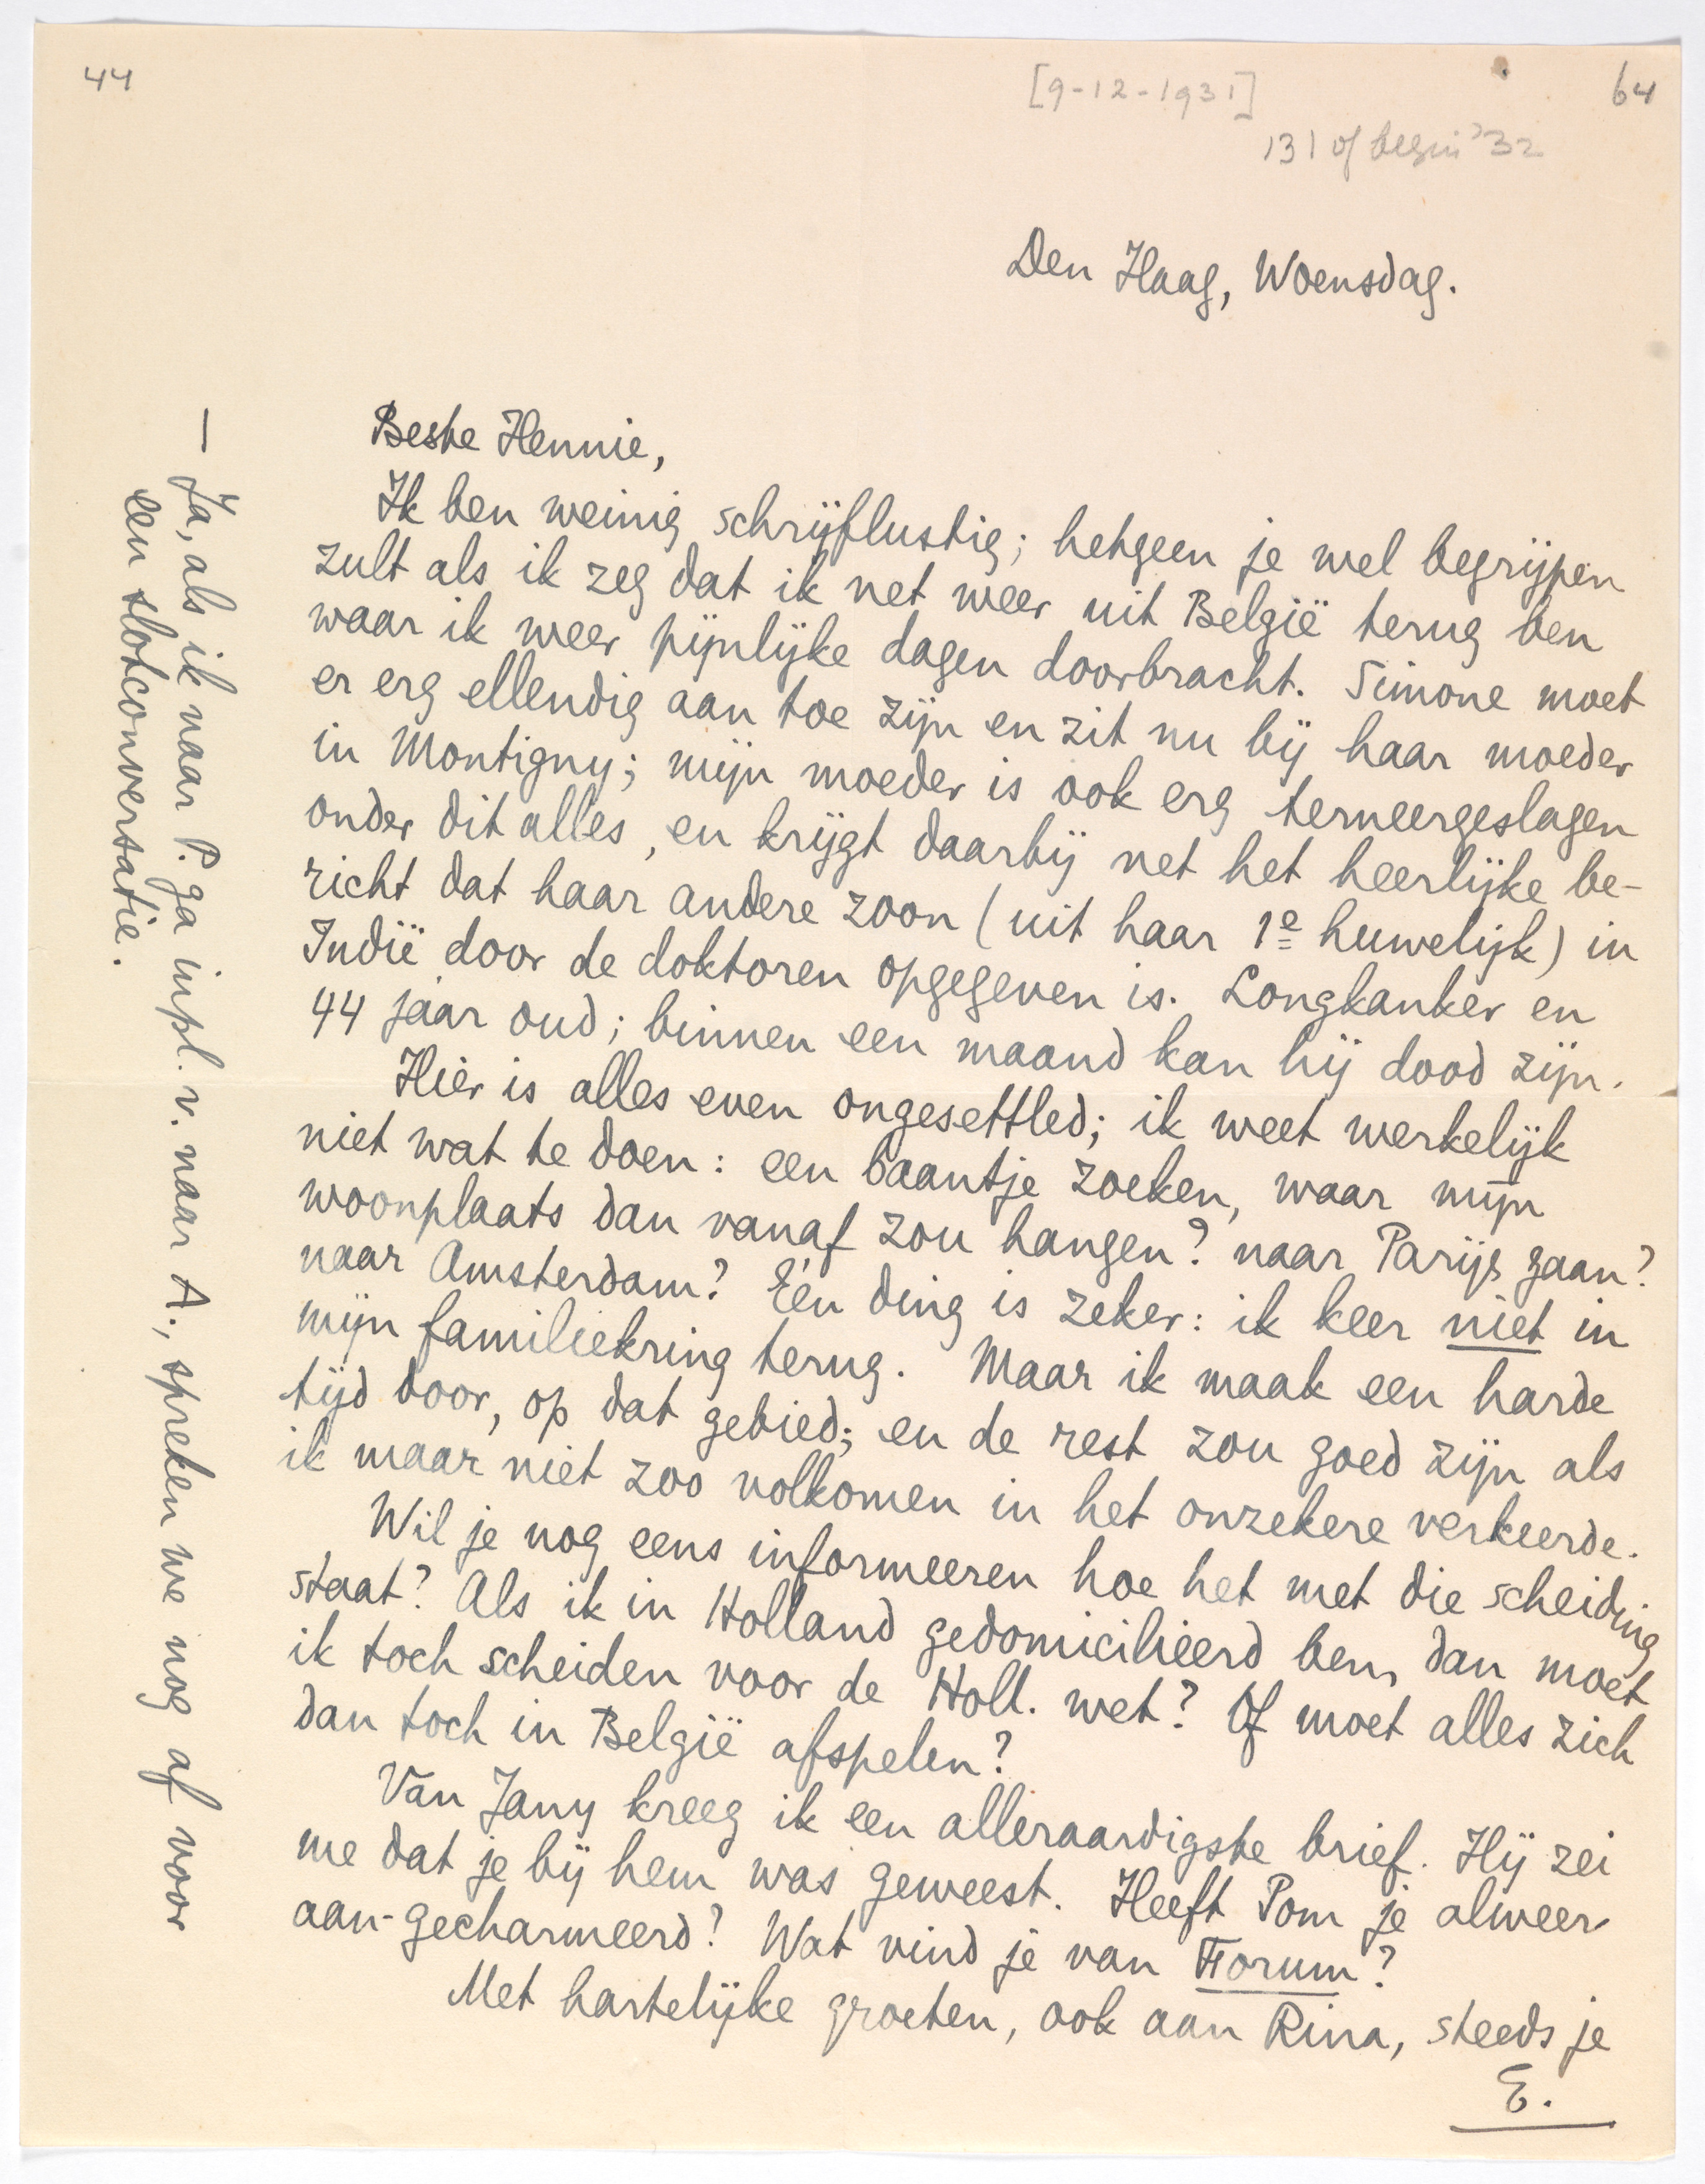 44
[9-12-1931]
64
'31 of begin '32
Den Haag, Woensdag.
Beste Hennie,
Ik ben weinig schrijflustig; hetgeen je wel begrijpen
zult als ik zeg dat ik net weer uit België terug ben
waar ik weer pijnlijke dagen doorbracht. Simone moet
er erg ellendig aan toe zijn en zit nu bij haar moeder
in Montigny; mijn moeder is ook erg terneergeslagen
onder dit alles, en krijgt daarbij net het heerlijke be-
richt dat haar andere zoon (uit haar 1e huwelijk) in
Indië door de doktoren opgegeven is. Longkanker en
44 jaar oud; binnen een maand kan hij dood zijn.
Hier is alles even ongesettled; ik weet werkelijk
niet wat te doen: een baantje zoeken, waar mijn
woonplaats dan vanaf zou hangen? naar Parijs gaan?
naar Amsterdam? Eén ding is zeker: ik keer niet in
mijn familiekring terug. Maar ik maak een harde
tijd door, op dat gebied; en de rest zou goed zijn als
ik maar niet zoo volkomen in het onzekere verkeerde.
Wil je nog eens informeeren hoe het met die scheiding
staat? Als ik in Holland gedomicilieerd ben, dan moet
ik toch scheiden voor de Holl. wet? Of moet alles zich
dan toch in België afspelen?
Van Jany kreeg ik een alleraardigste brief. Hij zei
me dat je bij hem was geweest. Heeft Pom je alweer
aan-gecharmeerd? Wat vind je van Forum?
Met hartelijke groeten, ook aan Rina, steeds je
E.
— Ja, als ik naar P. ga inpl. v. naar A., spreken we nog af voor
een slotconversatie.